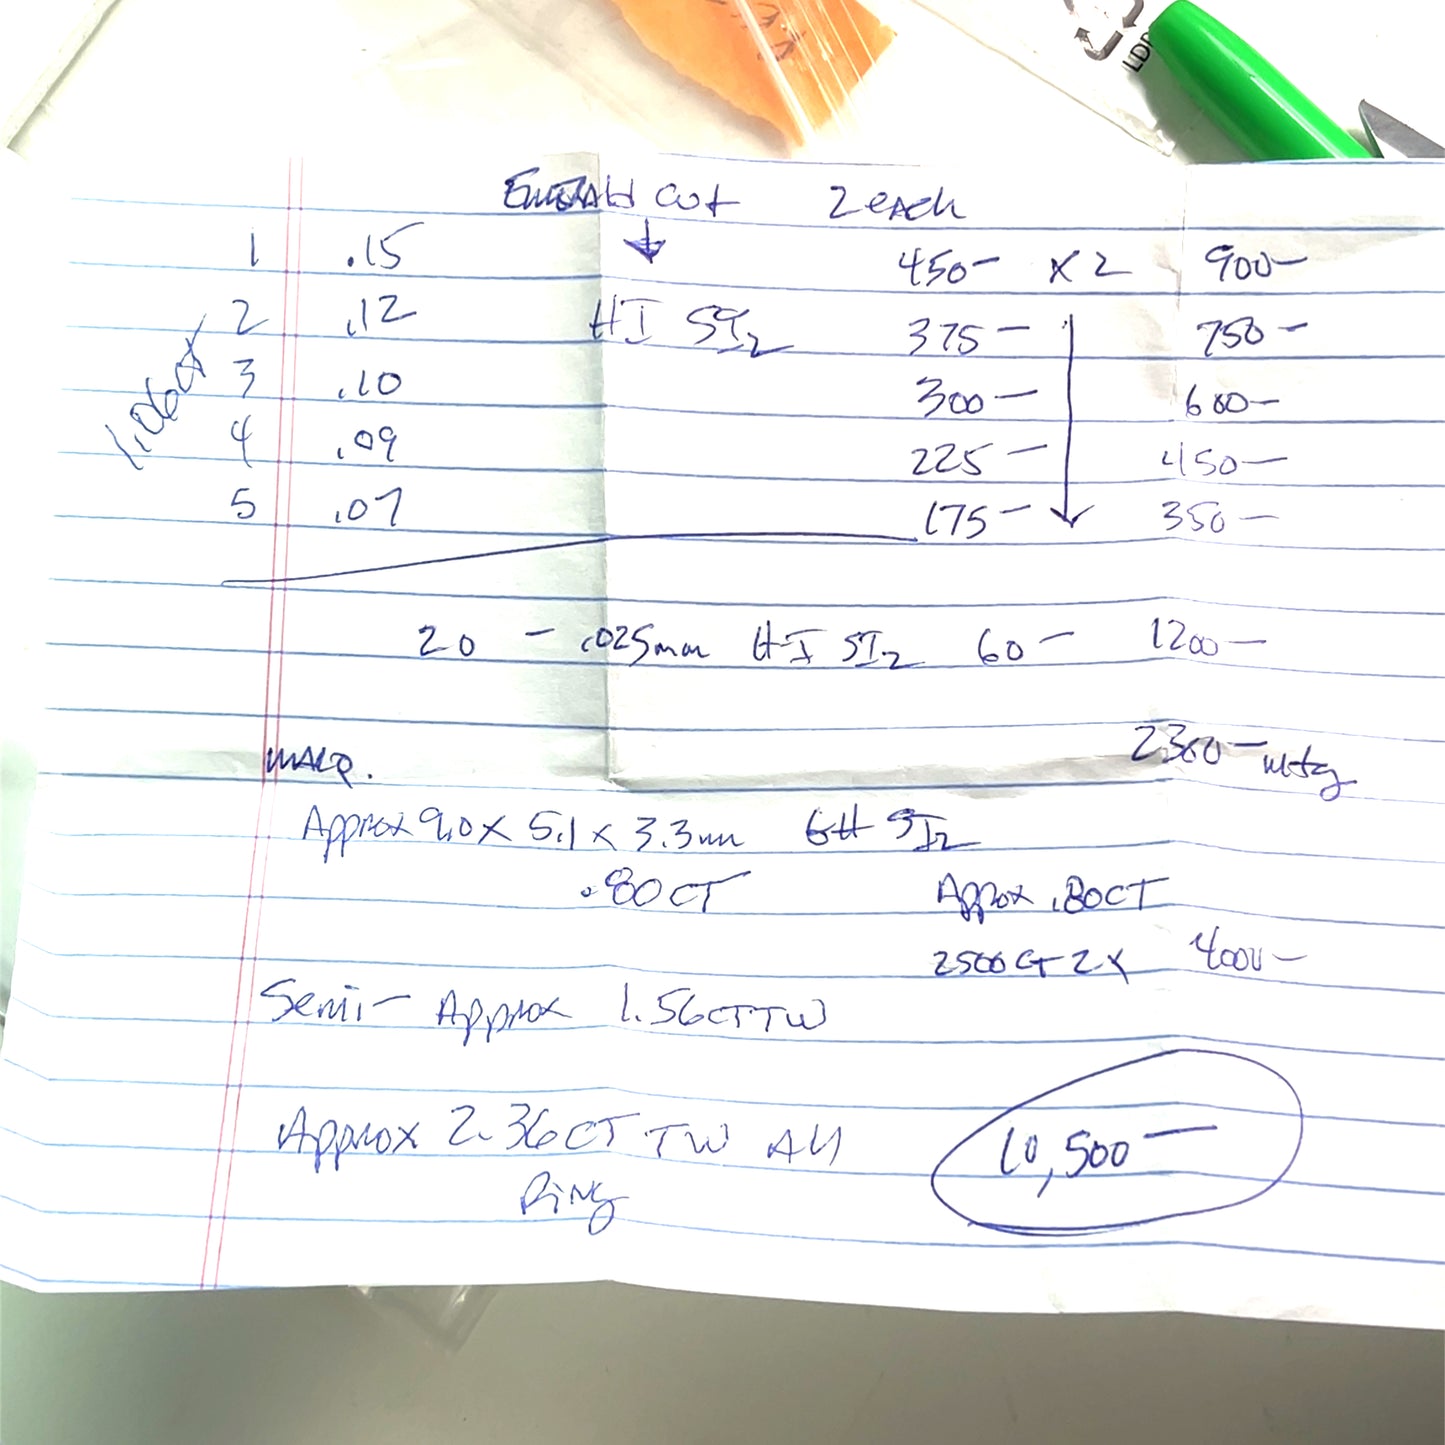 LDP
Emerald cut 2 each
1 .15 450- x 2 900-
2 .12 HI SI2 375- 750-
3 .10 300- 600-
4 .09 225- 450-
5 .07 175- 350-
1.06ct
20 - .025mm HI SI2 60- 1200-
2300- mtg
MARQ.
Approx 9.0 x 5.1 x 3.3mm GH SI2
.80CT Approx .80CT
2500 CT 2x 4000-
Semi- Approx 1.56CTTW
Approx 2.36CT TW All 10,500-
Ring